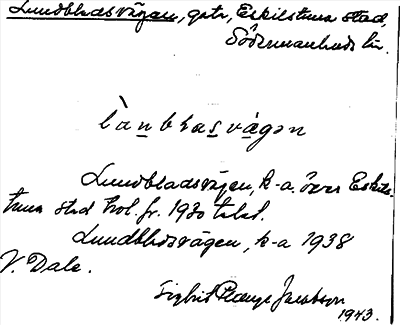 Lundbladsvägen, gata, Eskilstuna stad,
Södermanlands län.
lànbkasvágən
Lundbladsvägen, k-a. över Eskils-
tuna stad trol. fr. 1930 talet.
Lundbladsvägen, k-a 1938
V. Dale.
Sigbrit Plænge Jacobson
1943.